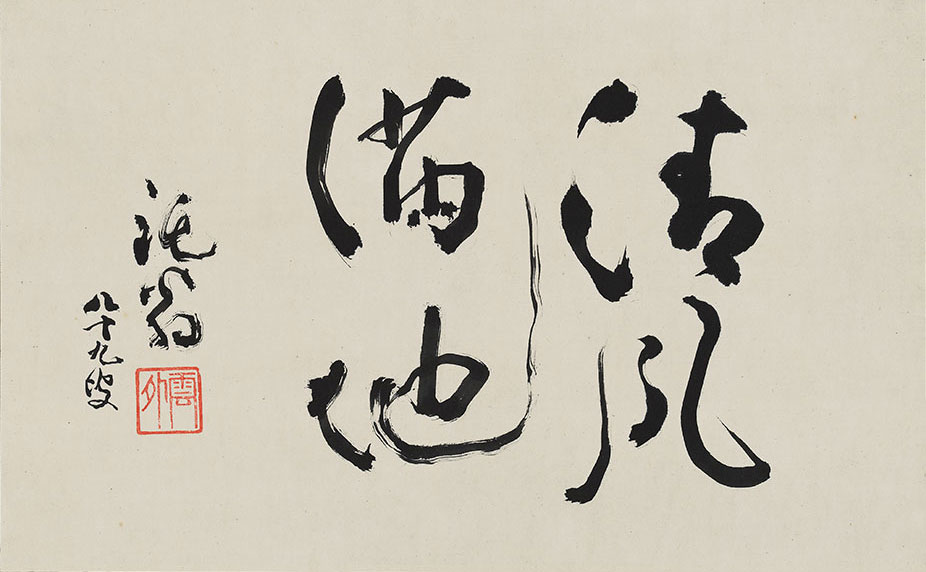 清風
満地
鈍翁
八十九叟
雲外